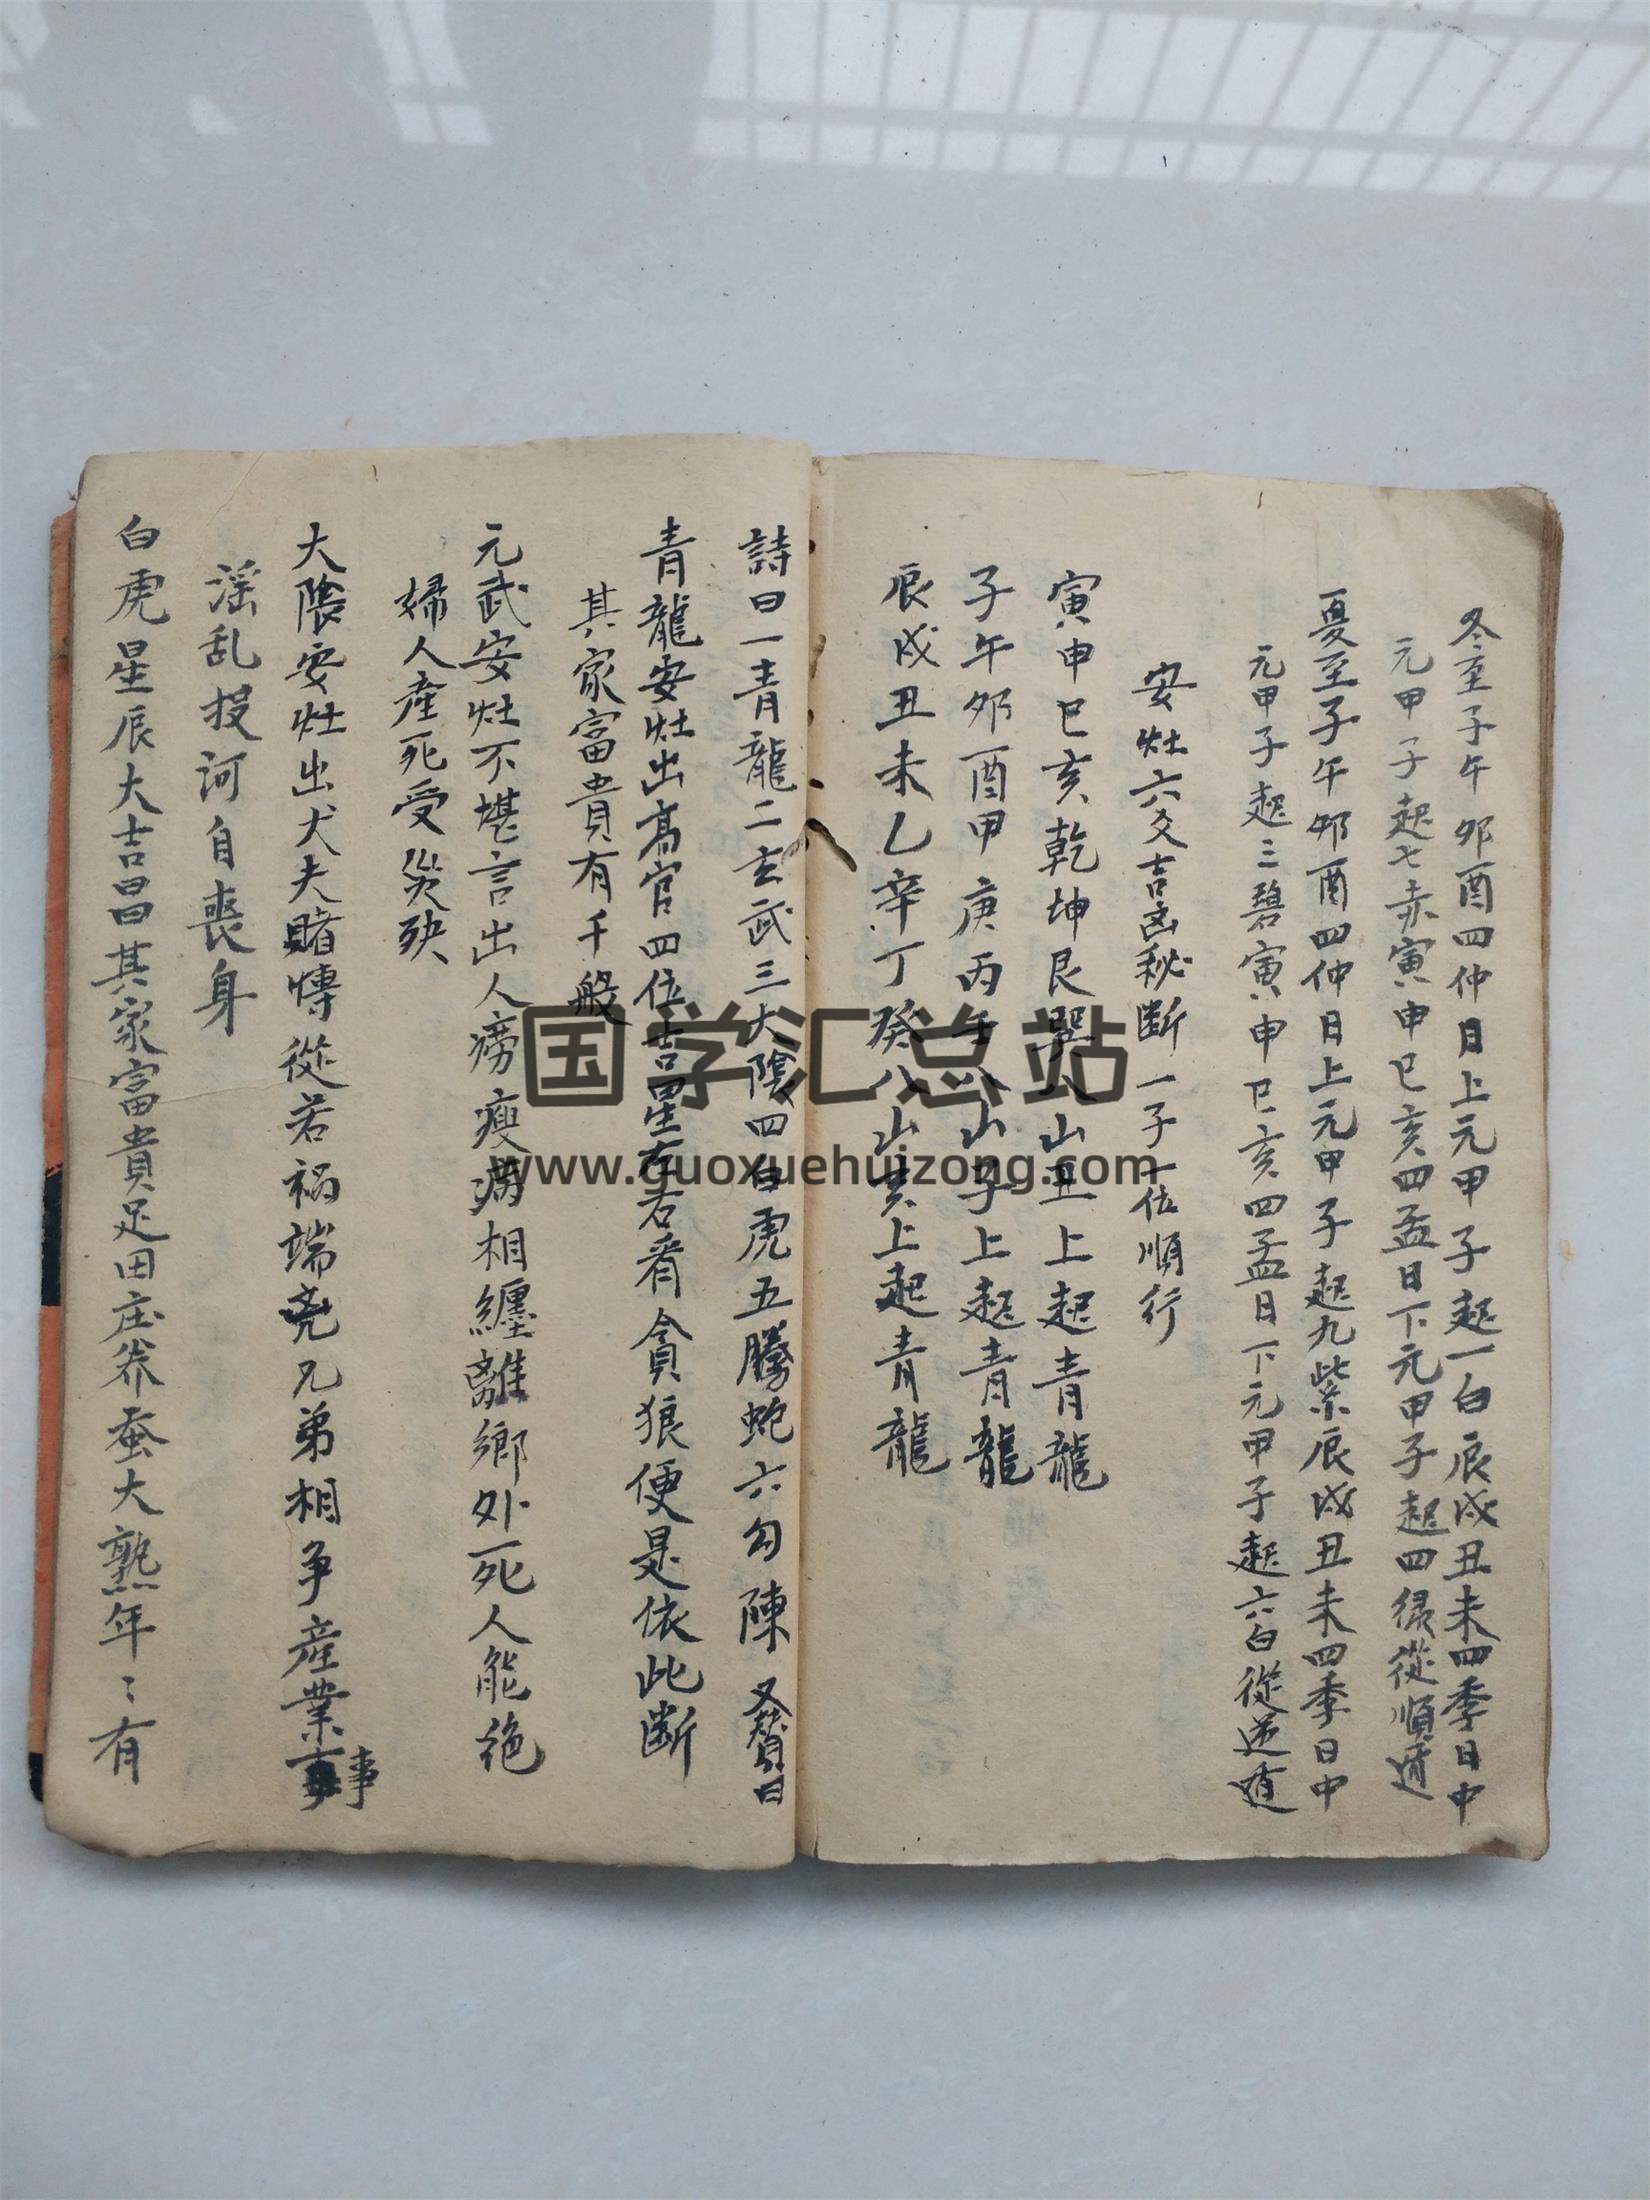 冬至子午邜酉四仲日上元甲子起一白辰戌丑未四季日中
元甲子起七赤寅申巳亥四孟日下元甲子起四緑從順遁
夏至子午邜酉四仲日上元甲子起九紫辰戌丑未四季日中
元甲子起三碧寅申巳亥四孟日下元甲子起六白從逆遁
安灶六爻吉凶秘断一子一位順行
寅申巳亥乾坤艮巽八山丑上起青龍
子午邜酉甲庚丙壬八山子上起青龍
辰戌丑未乙辛丁癸八山亥上起青龍
詩曰一青龍二玄武三大陰四白虎五騰蛇六勾陳又賛曰
青龍安灶出髙官四位吉星左右看貪狼便是依此断
其家富貴有千般
元武安灶不堪言出人癆瘦病相纏離鄉外死人能绝
婦人産死受災殃
大陰安灶出犬夫賭博從若禍端尭兄弟相争産業事
淫乱投河自喪身
白虎星辰大吉昌其家富貴足田庄养蚕大熟年〻有
国学汇总站
www.guoxuehuizong.com